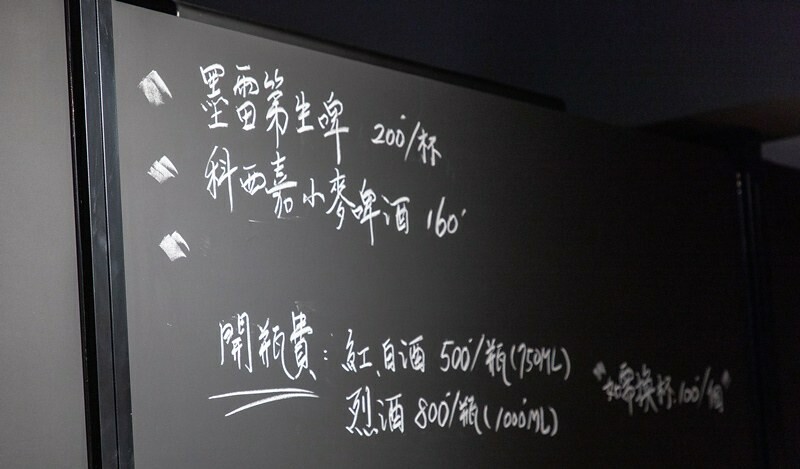 墨雷第生啤 200/杯
科西嘉小麥啤酒 160
開瓶費: 紅.白酒 500/瓶(750ML)
烈酒 800/瓶(1000ML)
"如需換杯.100/個"